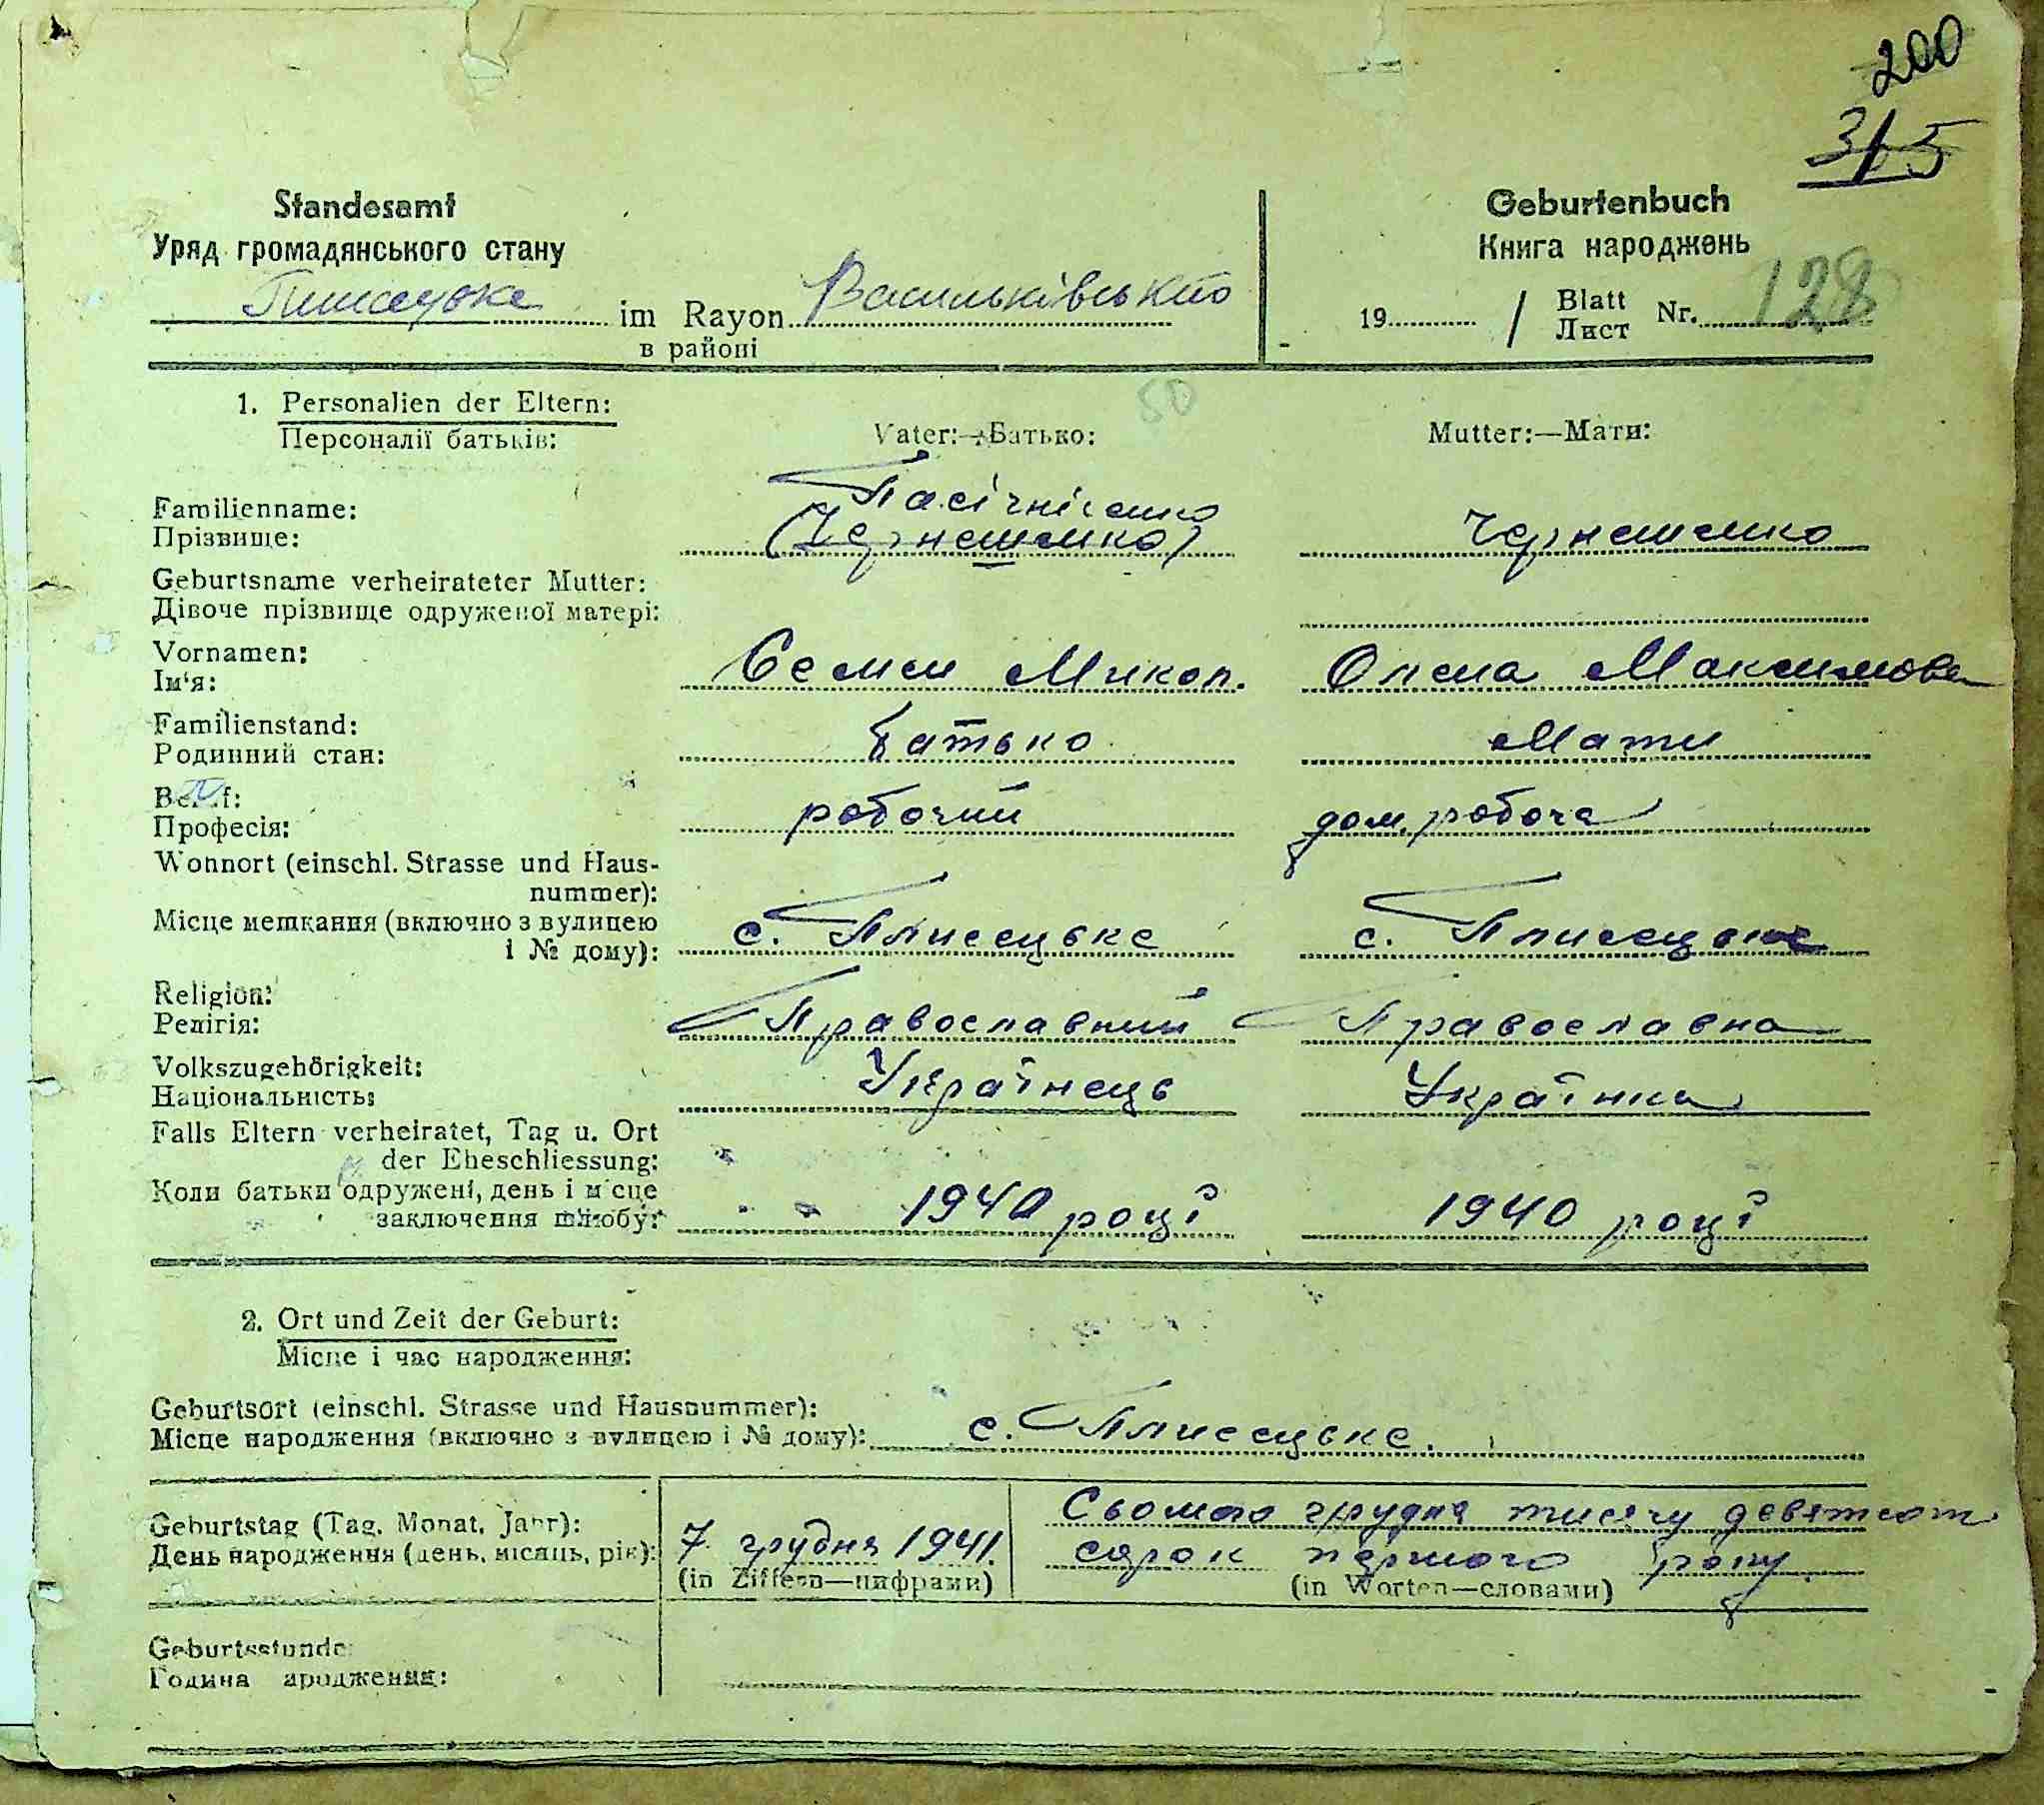 200
315
Standesamt
Уряд громадянського стану
Geburtenbuch
Книга народжень
Плисецьке im Rayon Васильківського
в районі
19 / Blatt Nr. 128
Лист
50
1. Personalien der Eltern:
Персоналії батьків:
Vater:—Батько:
Mutter:—Мати:
Familienname:
Прізвище:
Пасічніченко
(Чернешенко)
Чернешенко
Geburtsname verheirateter Mutter:
Дівоче прізвище одруженої матері:
Vornamen:
Ім'я:
Семен Микол.
Олена Максимовна
Familienstand:
Родинний стан:
батько
мати
Beruf:
Професія:
робочий
дом. робоча
Wohnort (einschl. Strasse und Haus-
nummer):
Місце мешкання (включно з вулицею
і № дому):
с. Плисецьке
с. Плисецьке
Religion:
Релігія:
Православний
Православна
Volkszugehörigkeit:
Національність:
Українець
Українка
Falls Eltern verheiratet, Tag u. Ort
der Eheschliessung:
Коли батьки одружені, день і місце
заключення шлюбу:
1940 році
1940 році
2. Ort und Zeit der Geburt:
Місце і час народження:
Geburtsort (einschl. Strasse und Hausnummer):
Місце народження (включно з вулицею і № дому): с. Плисецьке.
Geburtstag (Tag, Monat, Jahr):
День народження (день, місяць, рік):
7 грудня 1941.
(in Ziffern—цифрами)
Сьомого грудня тисячу девятсот
сорок першого року.
(in Worten—словами)
Geburtsstunde
Година народження: